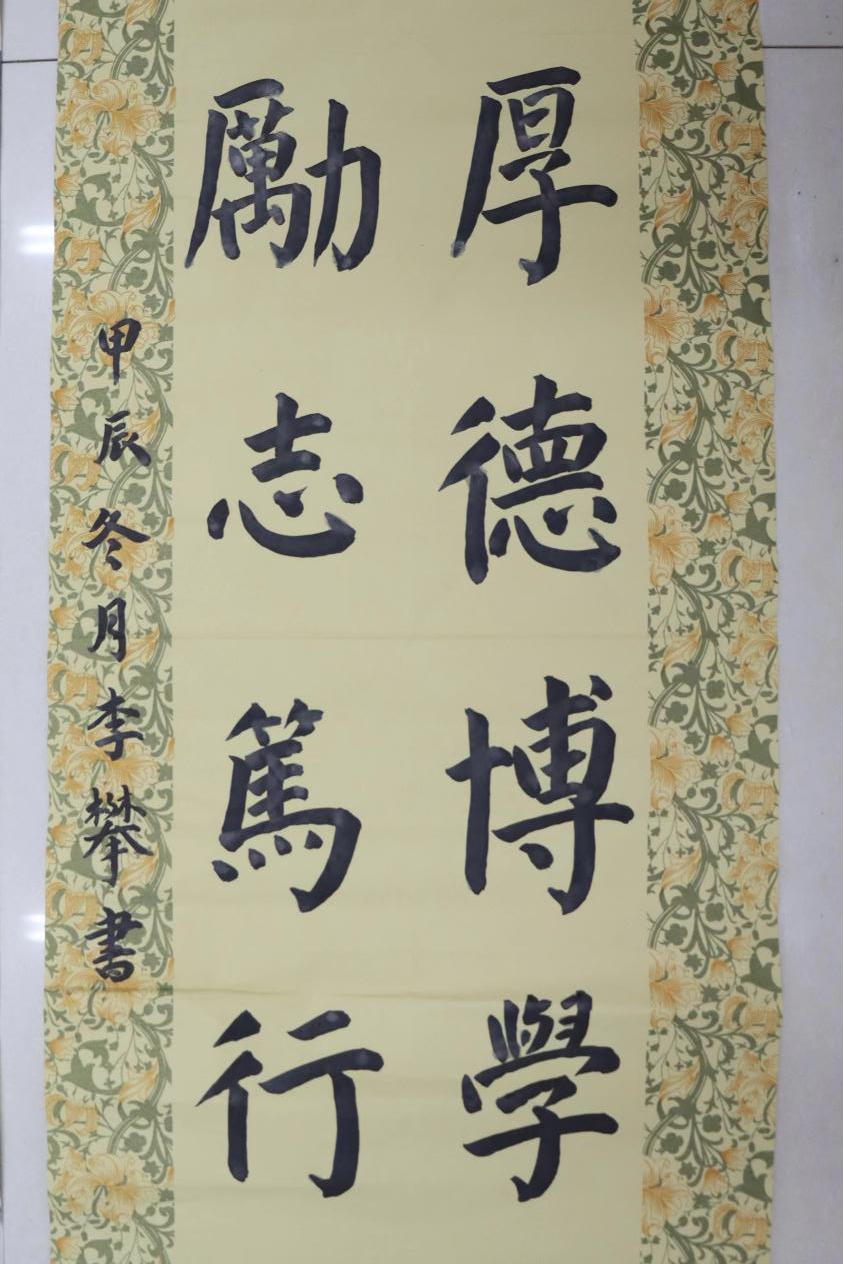 厚德博學
勵志篤行
甲辰冬月李攀書